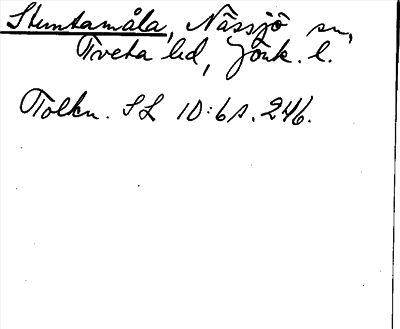 Stuntamåla, Nässjö sn,
Tveta hd, Jönk. l.
Tolkn. SL 10:6 s. 246.